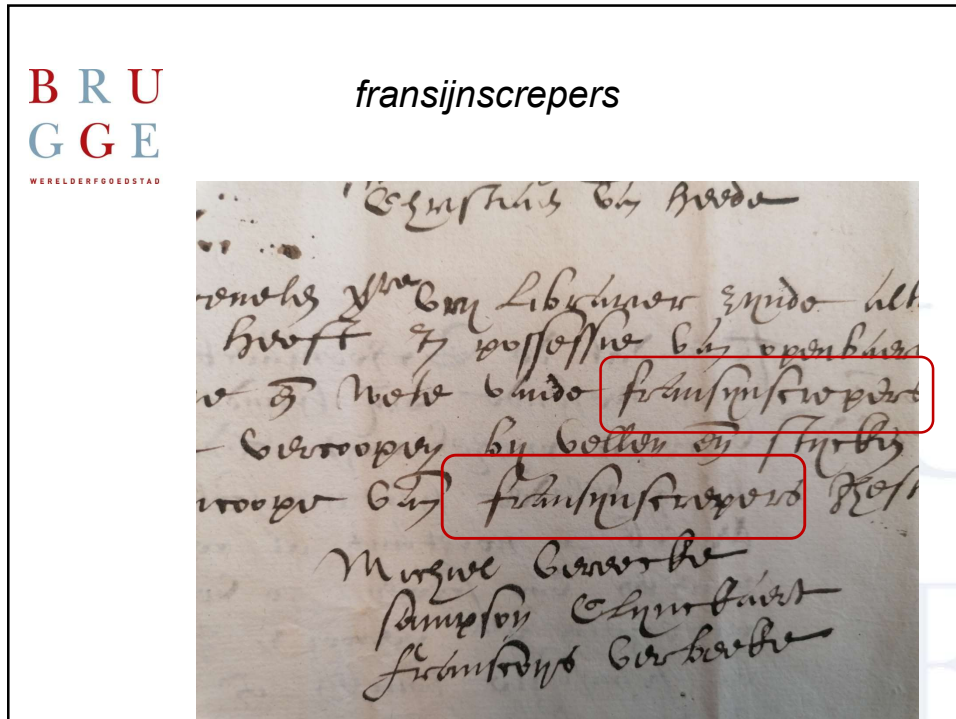 BRU
GGE
WERELDERFGOEDSTAD
fransijnscrepers
Christiaen van Heede
vry Librarier zynde
heeft in possessie van openbaer
en wete vande fransynscrepers
vercoopen by vellen en stycken
coope van fransynscrepers
Michiel Vereecke
sampson Clynckaert
franscoys verbeeke